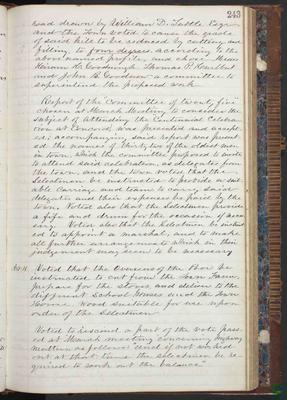 243
road drawn by William D. Tuttle Esqr.
and the Town voted to cause the grade
of said hill to be reduced by cutting and
filling to four degrees according to the
above named profile, and chose Messrs
Hiram H. Goodnough Thomas P.
and John B. Goodnow a committee to
superintend the proposed work.
Report of the Committee of twenty five
chosen at March Meeting to consider the
subject of attending the Centennial Celebra
tion at Concord, was presented and accept
ed; accompanying said report was present
ed the names of thirty two of the oldest men
in town, which the committee proposed to invite
to attend said celebration as delegates from
the town, and the town voted that the
Selectmen be instructed to provide a suit
able Carriage and team to carry said
delegates and their expenses be paid by the
town. Voted also that the Selectmen provide
a fife and drum for the occasion if neces
sary. Voted also that the Selectmen be instruct
ed to appoint a marshal, and to make
all further arrangements which in their
judgement may seem to be necessary
Art. 11. Voted that the Overseers of the Poor be
instructed to cut from the Poor Farm,
prepare for the stoves, and deliver to the
different School Houses and the Town
House, wood suitable for use upon
order of the Selectmen.
Voted to rescind a part of the vote pass
ed at March meeting concerning highway
matters as follows "And if not worked
out at that time the selectmen be re
quired to work out the balance"